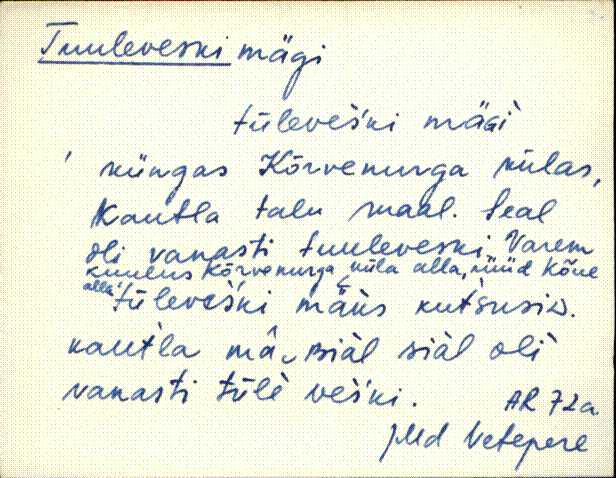 Tuuleveski mägi
tüleveśki mäGì
küngas Kõrvenurga külas,
Kautla talu maal. Seal
oli vanasti tuuleveski. Varem
kuulus Kõrvenurga küla alla, nüüd Kõue
alla.
tüleveśki mäüs kutsusiD.
kaut̀la mâ, siàl oli
vanasti tǖlè veśki.
AR 72a
JMd Vetepere